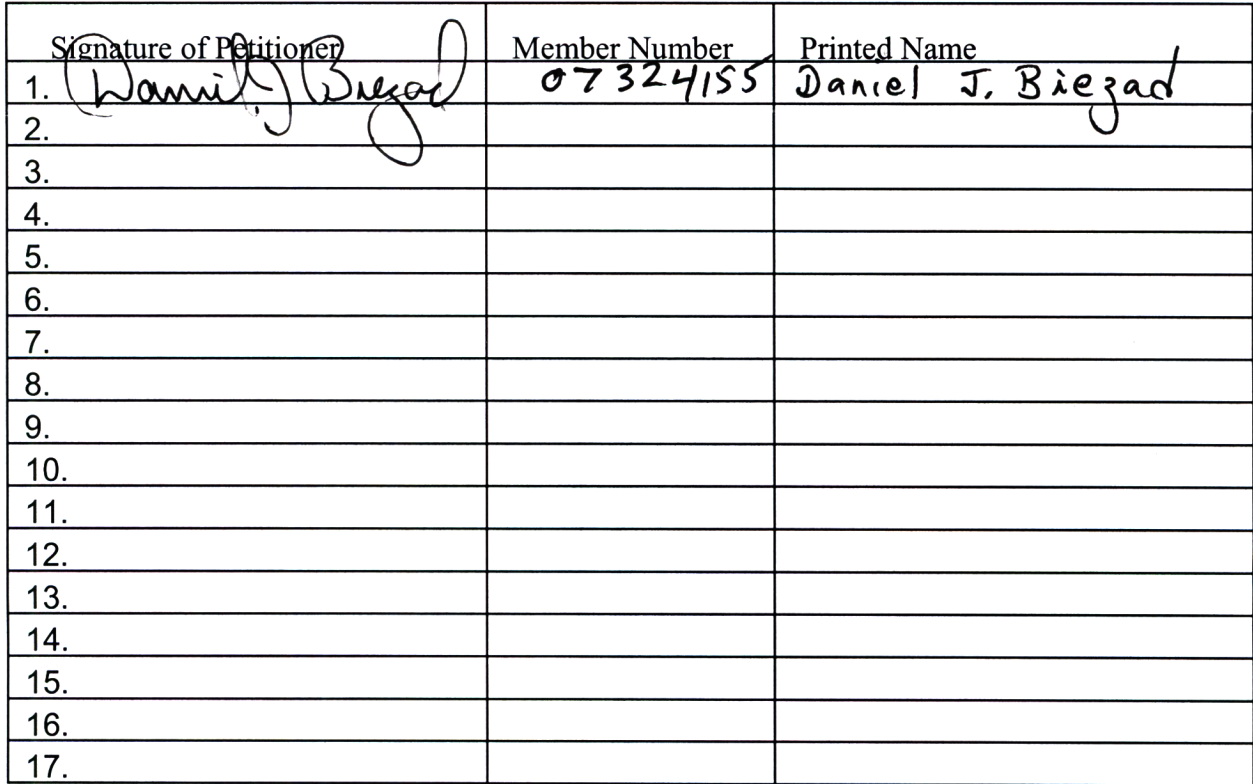 Signature of Petitioner Member Number Printed Name
1. Daniel J Biezad 07324155 Daniel J. Biezad
2.
3.
4.
5.
6.
7.
8.
9.
10.
11.
12.
13.
14.
15.
16.
17.